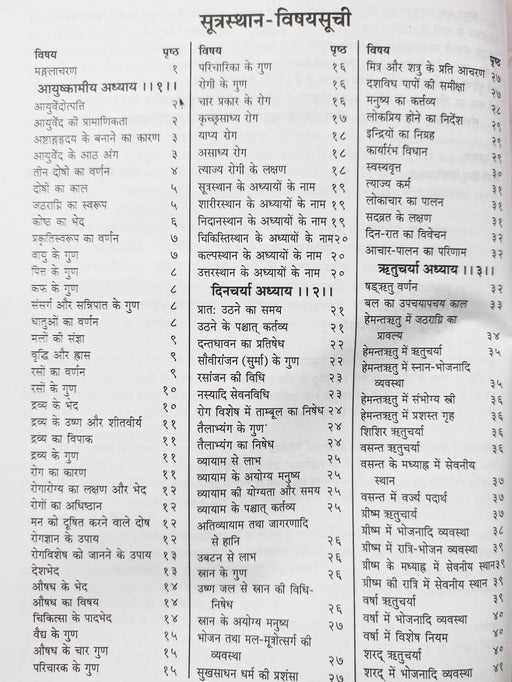 सूत्रस्थान-विषयसूची
विषय पृष्ठ
मङ्गलाचरण १
आयुष्कामीय अध्याय ।।१।।
आयुर्वेदोत्पत्ति २
आयुर्वेद की प्रामाणिकता २
अष्टाङ्गहृदय के बनाने का कारण ३
आयुर्वेद के आठ अंग ३
तीन दोषों का वर्णन ४
दोषों का काल ५
जठराग्नि का स्वरूप ५
कोष्ठ का भेद ६
प्रकृतिस्वरूप का वर्णन ७
वायु के गुण ७
पित्त के गुण ८
कफ के गुण ८
संसर्ग और सन्निपात के गुण ८
धातुओं का वर्णन ८
मलों की संज्ञा ९
वृद्धि और ह्रास ९
रसों का वर्णन ९
रसों के गुण १०
द्रव्य के भेद १०
द्रव्य के उष्ण और शीतवीर्य ११
द्रव्य का विपाक ११
द्रव्य के गुण ११
रोग का कारण ११
रोगारोग्य का लक्षण और भेद १२
रोगों का अधिष्ठान १२
मन को दूषित करने वाले दोष १२
रोगज्ञान के उपाय १२
रोगविशेष को जानने के उपाय १३
देशभेद १३
औषध के भेद १४
औषध का विषय १४
चिकित्सा के पादभेद १४
वैद्य के गुण १५
औषध के चार गुण १५
परिचारक के गुण १५
विषय पृष्ठ
परिचारिका के गुण १६
रोगी के गुण १६
चार प्रकार के रोग १६
कृच्छ्रसाध्य रोग १७
याप्य रोग १८
असाध्य रोग १८
त्याज्य रोगी के लक्षण १८
सूत्रस्थान के अध्यायों के नाम १९
शारीरस्थान के अध्यायों के नाम १९
निदानस्थान के अध्यायों के नाम १९
चिकित्सितस्थान के अध्यायों के नाम २०
कल्पस्थान के अध्यायों के नाम २०
उत्तरस्थान के अध्यायों के नाम २०
दिनचर्या अध्याय ।।२।।
प्रातः उठने का समय २१
उठने के पश्चात् कर्तव्य २१
दन्तधावन का प्रतिषेध २२
सौवीरांजन (सुर्मा) के गुण २२
रसांजन की विधि २३
नस्यादि सेवनविधि २३
रोग विशेष में ताम्बूल का निषेध २४
तैलाभ्यंग के गुण २४
तैलाभ्यंग का निषेध २४
व्यायाम से लाभ २५
व्यायाम के अयोग्य मनुष्य २५
व्यायाम की योग्यता और समय २५
व्यायाम के पश्चात् कर्तव्य २५
अतिव्यायाम तथा जागरणादि
से हानि २६
उबटन से लाभ २६
स्नान के गुण २६
उष्ण जल से स्नान की विधि-
निषेध २६
स्नान के अयोग्य मनुष्य २७
भोजन तथा मल-मूत्रोत्सर्ग की
व्यवस्था २७
सुखसाधन धर्म की प्रशंसा २७
विषय पृष्ठ
मित्र और शत्रु के प्रति आचरण २७
दशविध पापों की समीक्षा २७
मनुष्य का कर्तव्य २८
लोकप्रिय होने का निर्देश २९
इन्द्रियों का निग्रह २९
कार्यारंभ विधान २९
स्वस्थवृत्त ३०
त्याज्य कर्म ३१
लोकाचार का पालन ३१
सदव्रत के लक्षण ३१
दिन-रात का विवेचन ३२
आचार-पालन का परिणाम ३२
ऋतुचर्या अध्याय ।।३।।
षड्ऋतु वर्णन ३२
बल का उपचयापचय काल ३३
हेमन्तऋतु में जठराग्नि का
प्राबल्य ३४
हेमन्तऋतु में ऋतुचर्या ३५
हेमन्तऋतु में स्नान-भोजनादि
व्यवस्था ३५
हेमन्तऋतु में संभोग्य स्त्री ३६
हेमन्तऋतु में प्रशस्त गृह ३६
शिशिर ऋतुचर्या ३६
वसन्त ऋतुचर्या ३६
वसन्त के मध्याह्न में सेवनीय
स्थान ३७
वसन्त में वर्ज्य पदार्थ ३७
ग्रीष्म ऋतुचार्य ३७
ग्रीष्म में भोजनादि व्यवस्था ३८
ग्रीष्म में रात्रि-भोजन व्यवस्था ३९
ग्रीष्म के मध्याह्न में सेवनीय स्थान ३९
ग्रीष्म की रात्रि में सेवनीय स्थान ३९
वर्षा ऋतुचर्या ३९
वर्षा में भोजनादि व्यवस्था ४०
वर्षा में विशेष नियम ४०
शरद् ऋतुचर्या ४०
शरद् में भोजनादि व्यवस्था ४१